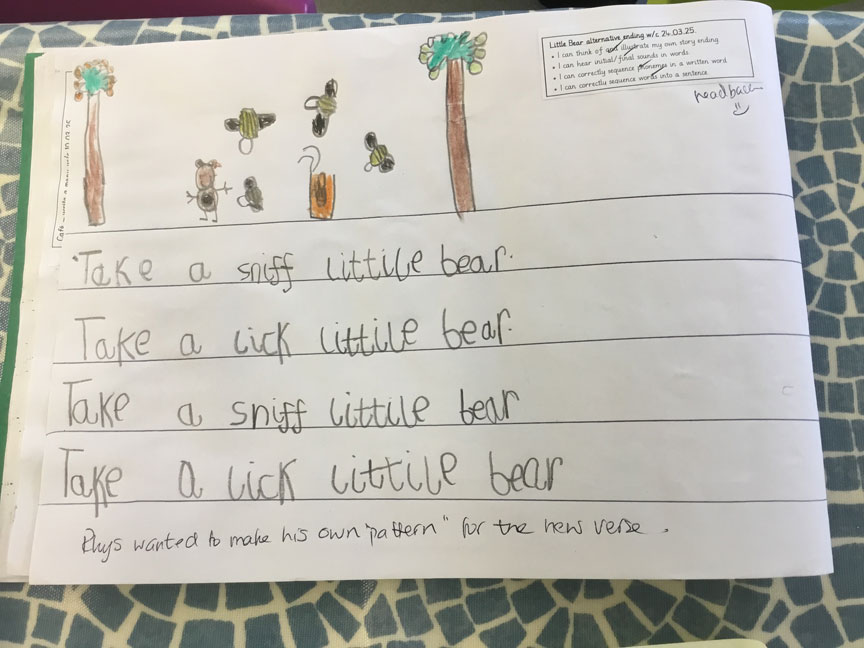 Little Bear alternative ending w/c 24.03.25.
• I can think of and illustrate my own story ending
• I can hear initial/final sounds in words
• I can correctly sequence phonemes in a written word
• I can correctly sequence words into a sentence.
read back
Take a sniff littile bear.
Take a lick littile bear.
Take a sniff littile bear
Take a lick littile bear
Rhys wanted to make his own "pattern" for the new verse.